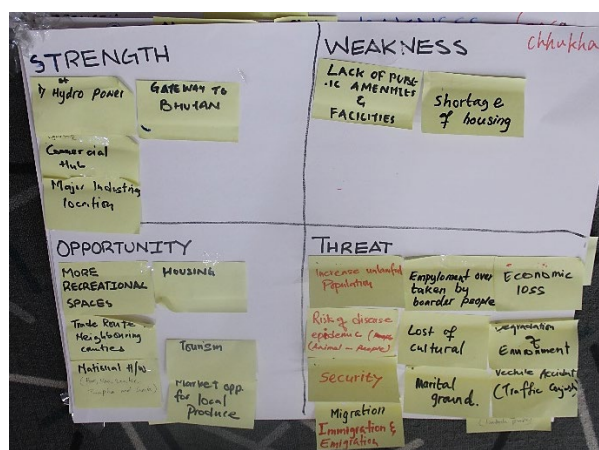 STRENGTH
1st Hydro Power
GATEWAY TO
BHUTAN
Commercial
Hub
Major Industry
location
WEAKNESS
chhukha
LACK OF PUBL
-IC AMENITIES
&
FACILITIES
Shortage
of housing
OPPORTUNITY
MORE
RECREATIONAL
SPACES
HOUSING
Trade Route
Neighbouring
National H/W
Tourism
Market opp.
for local
Produce
THREAT
Increase
Population
Empyloment over
taken by
boarder people
Economic
loss
Risk of disease
epidemic
(Animal – People)
Lost of
cultural
Degradation
of
Environment
Security
Marital
ground.
Vechile Accident
(Traffic
Migration
Immigration &
Emigration